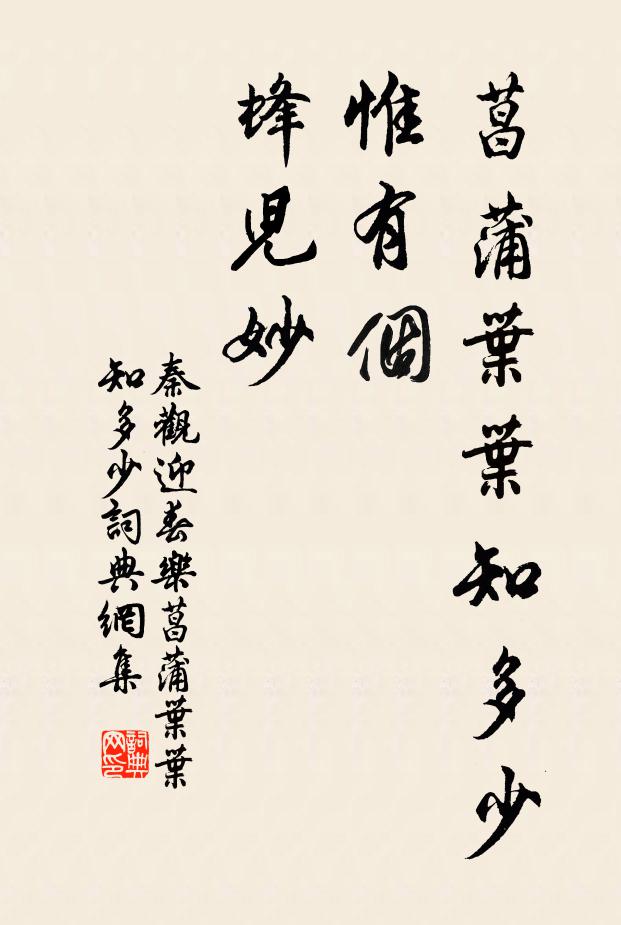 菖蒲葉葉知多少
惟有個
蜂兒妙
秦觀迎春樂菖蒲葉葉
知多少詞典網集
詞典
网印